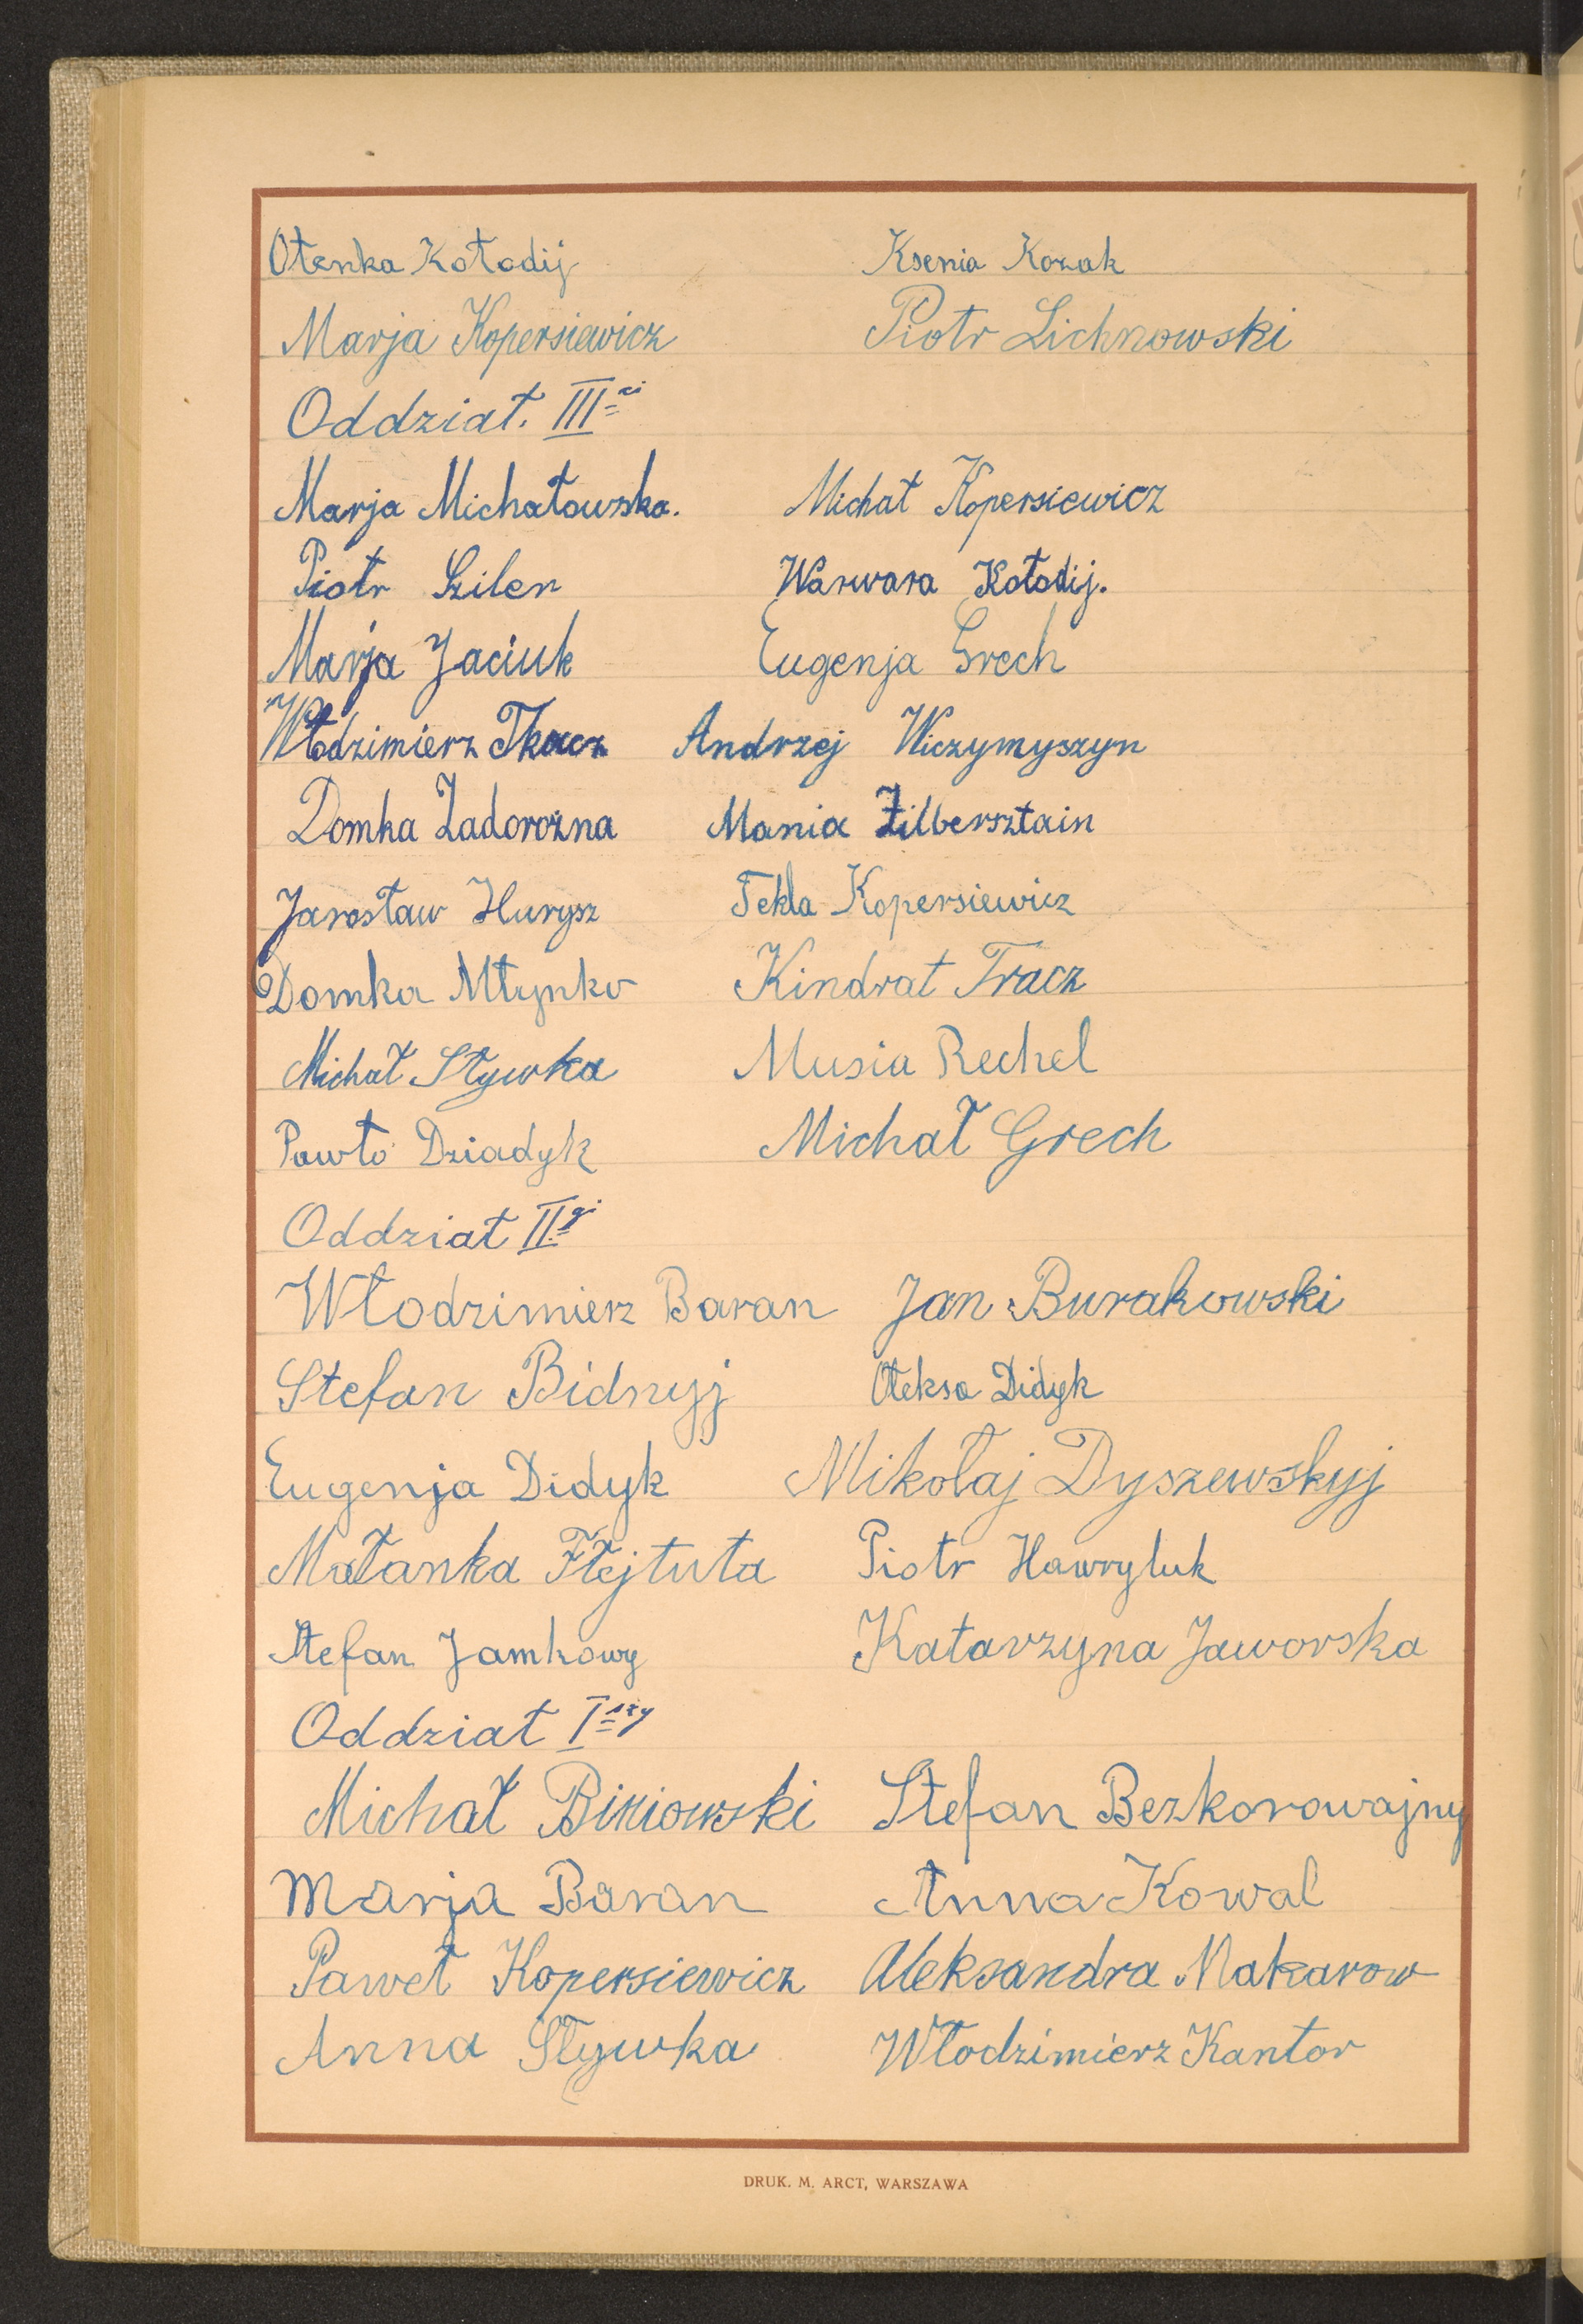 Ołenka Kołodij Ksenia Kozak
Marja Kopersiewicz Piotr Lichnowski
Oddział. III-ci
Marja Michałowska. Michał Kopersiewicz
Piotr Szilen Warwara Kołodij.
Marja Jaciuk Eugenja Grech
Włodzimierz Tkacz Andrzej Wiczymyszyn
Domka Zadorożna Mania Zilbersztain
Jarosław Hurysz Tekla Kopersiewicz
Domka Młynko Kindrat Tracz
Michał Sływka Musia Rechel
Pawło Dziadyk Michał Grech
Oddział II-gi
Włodzimierz Baran Jan Burakowski
Stefan Bidnyj Ołeksa Didyk
Eugenja Didyk Mikołaj Dyszewskyj
Małanka Flejtuta Piotr Hawryluk
Stefan Jamkowy Katarzyna Jaworska
Oddział I-szy
Michał Biniowski Stefan Bezkorowajny
Marja Baran Anna Kowal
Paweł Kopersiewicz Aleksandra Makarow
Anna Sływka Włodzimierz Kantor
DRUK. M. ARCT, WARSZAWA